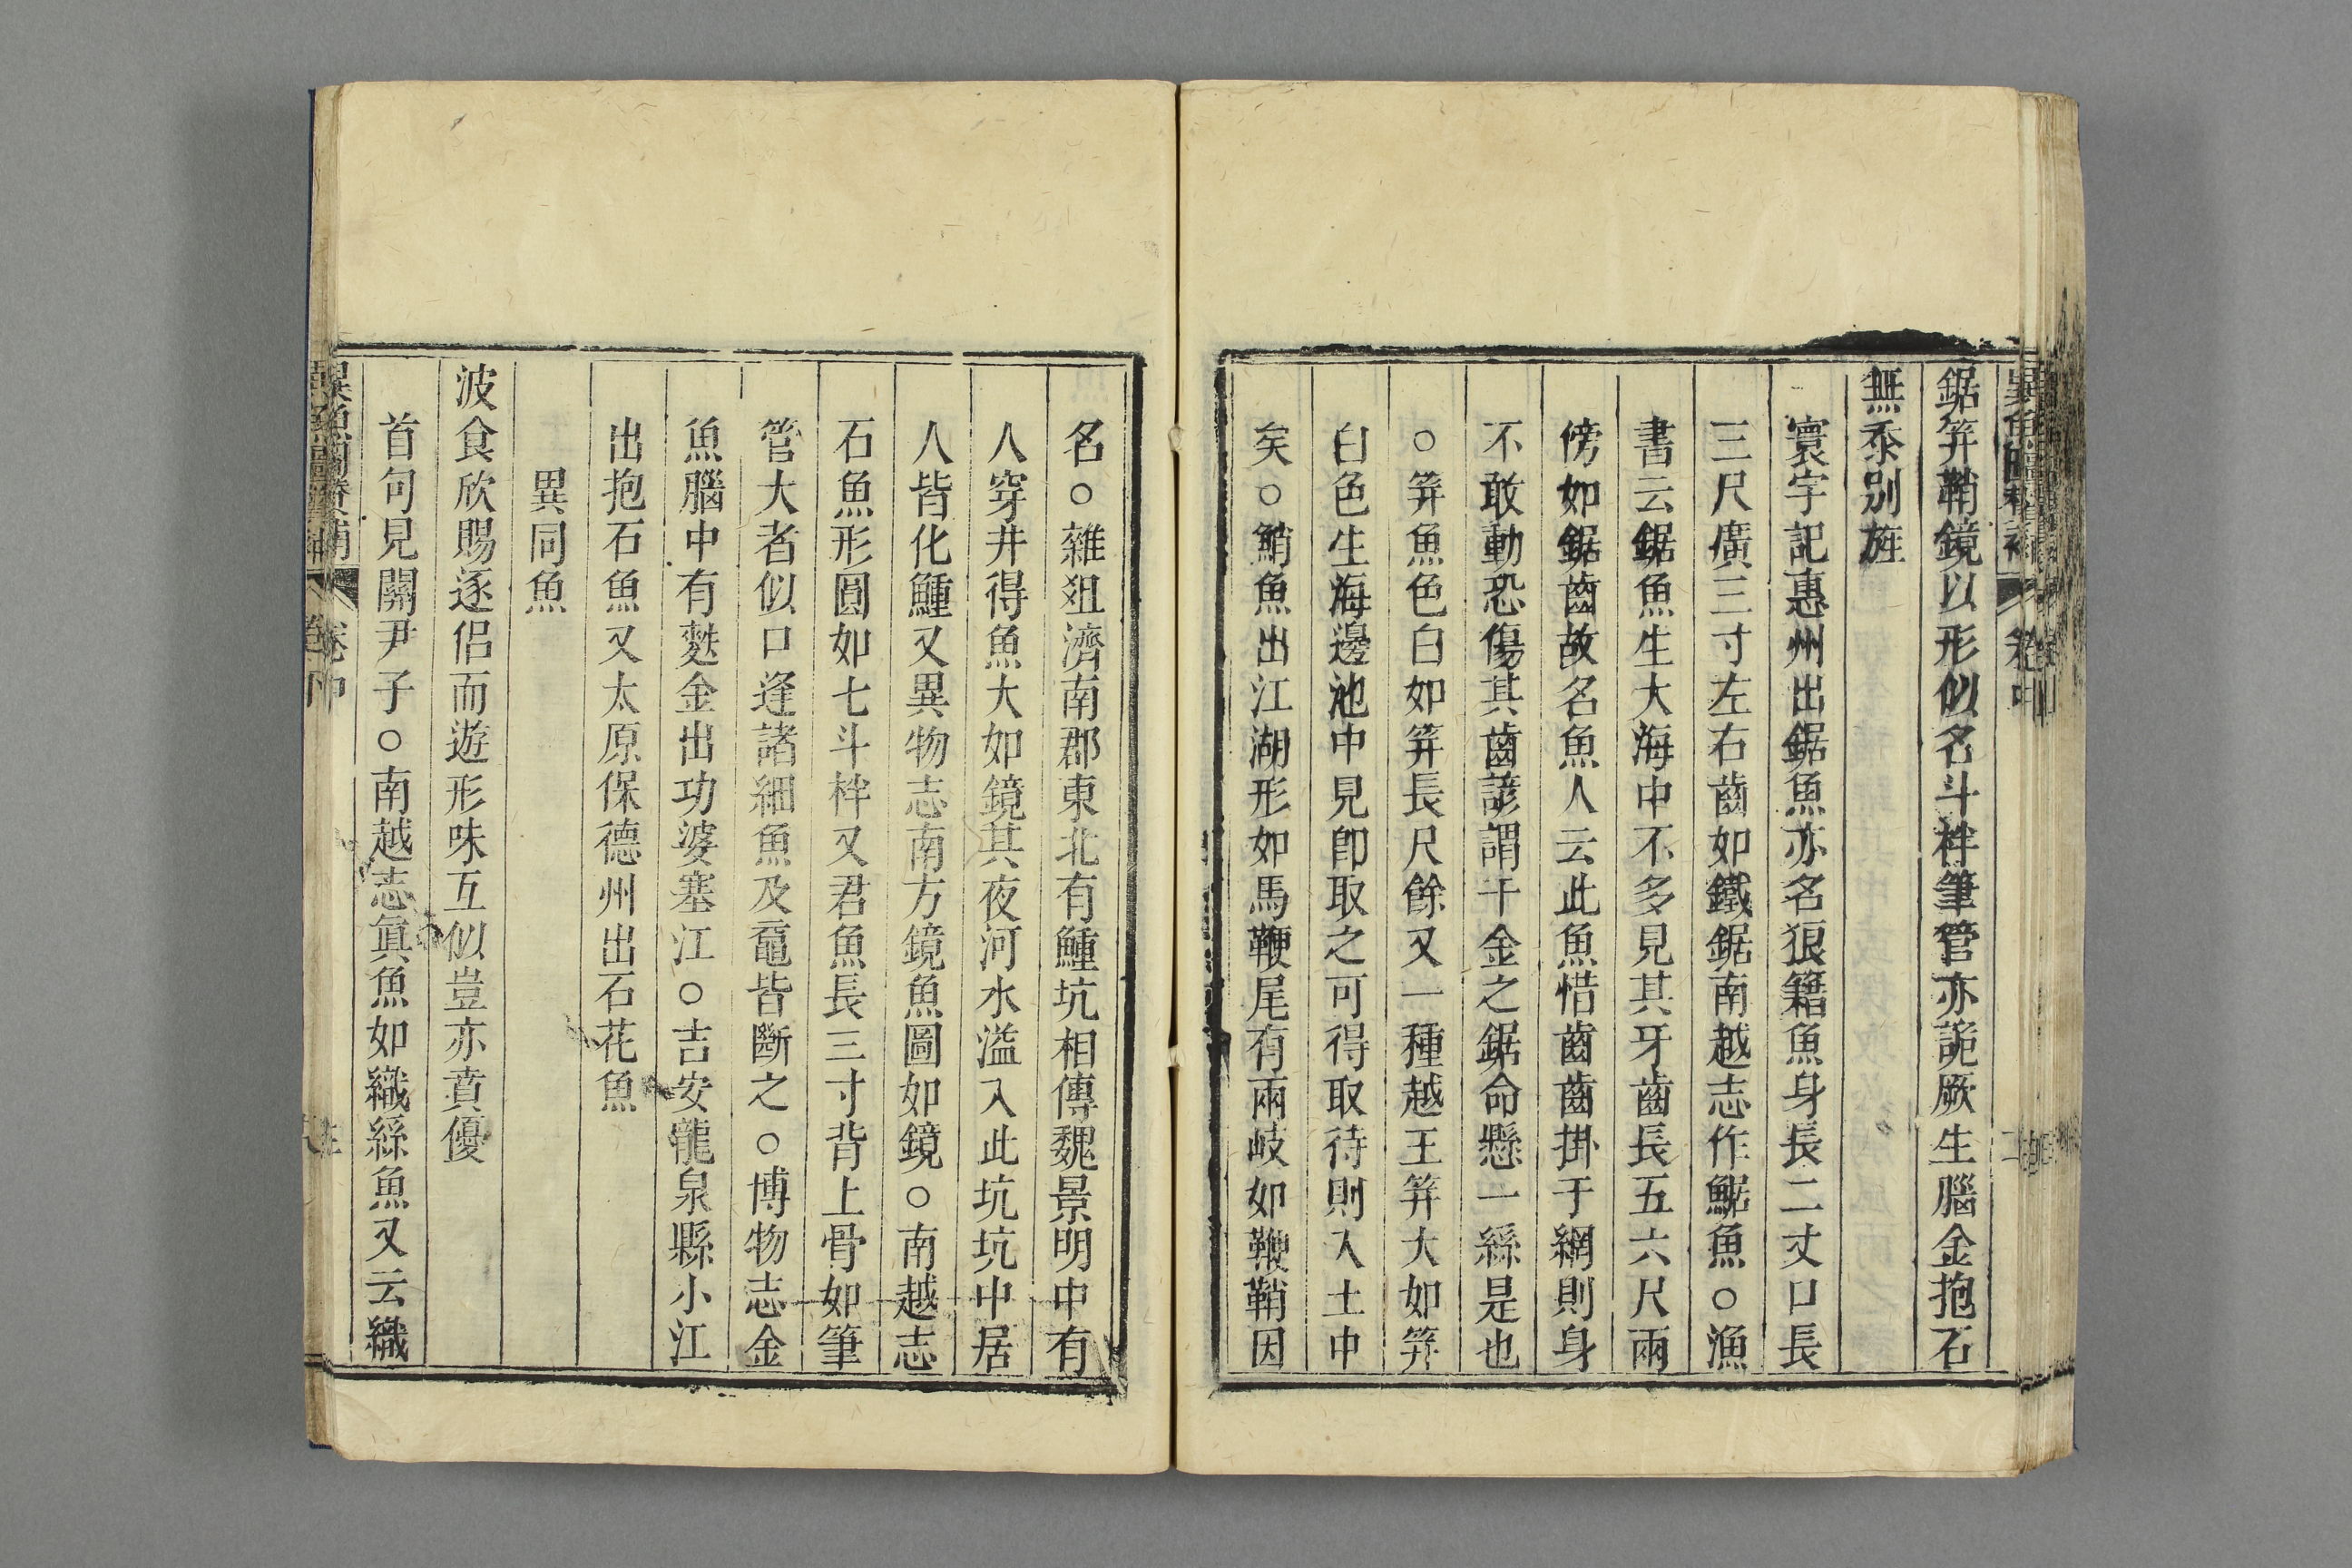 鋸笄鞘鏡以形似名斗柈筆管亦詭厥生腦金抱石
無忝別族
寰宇記惠州出鋸魚亦名狼籍魚身長二丈口長
三尺廣三寸左右齒如鐵鋸南越志作鯤魚○漁
書云鋸魚生大海中不多見其牙齒長五六尺兩
傍如鋸齒故名魚人云此魚惜齒齒掛于網則身
不敢動恐傷其齒諺謂千金之鋸命懸一絲是也
○笄魚色白如笄長尺餘又一種越王笄大如笄
白色生海邊池中見卽取之可得取待則入土中
矣○鮹魚出江湖形如馬鞭尾有兩岐如鞭鞘因
名○雜俎濟南郡東北有鱣坑相傳魏景明中有
人穿井得魚大如鏡其夜河水溢入此坑坑中居
人皆化鱣又異物志南方鏡魚圖如鏡○南越志
石魚形圓如七斗柈又君魚長三寸背上骨如筆
管大者似口逢諸細魚及黿皆斷之○博物志金
魚腦中有麩金出功婆塞江○吉安龍泉縣小江
出抱石魚又太原保德州出石花魚
異同魚
波食欣賜逐侶而遊形味互似豈亦賁優
首句見關尹子○南越志寘魚如織絲魚又云織
異魚圖贊補
卷中